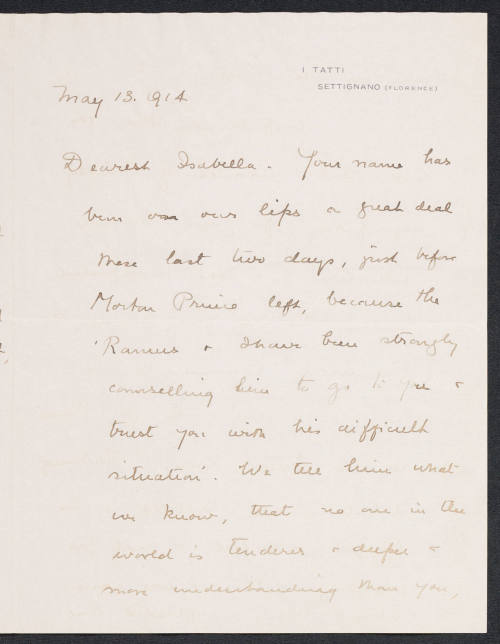 I TATTI
SETTIGNANO (FLORENCE)
May 13. 1914
Dearest Isabella - Your name has
been on our lips a great deal
these last two days, just before
Morton Prince left, because the
& I have been strongly
counselling him to go to you &
trust you with his difficult
situation'. We tell him what
we know, that no one in the
world is tenderer & deeper &
more understanding than you,